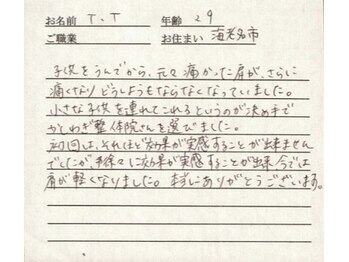 お名前 T.T 年齢 29
ご職業 お住まい 海老名市
子供をうんでから、元々痛かった肩が、さらに
痛くなりどうしようもならなくなっていました。
小さな子供を連れてこれるというのが決め手で
かしわぎ整体院さんを選びました。
初回は、それほど効果が実感することが出来ません
でしたが、徐々に効果が実感することが出来、今では
肩が軽くなりました。本当にありがとうございます。